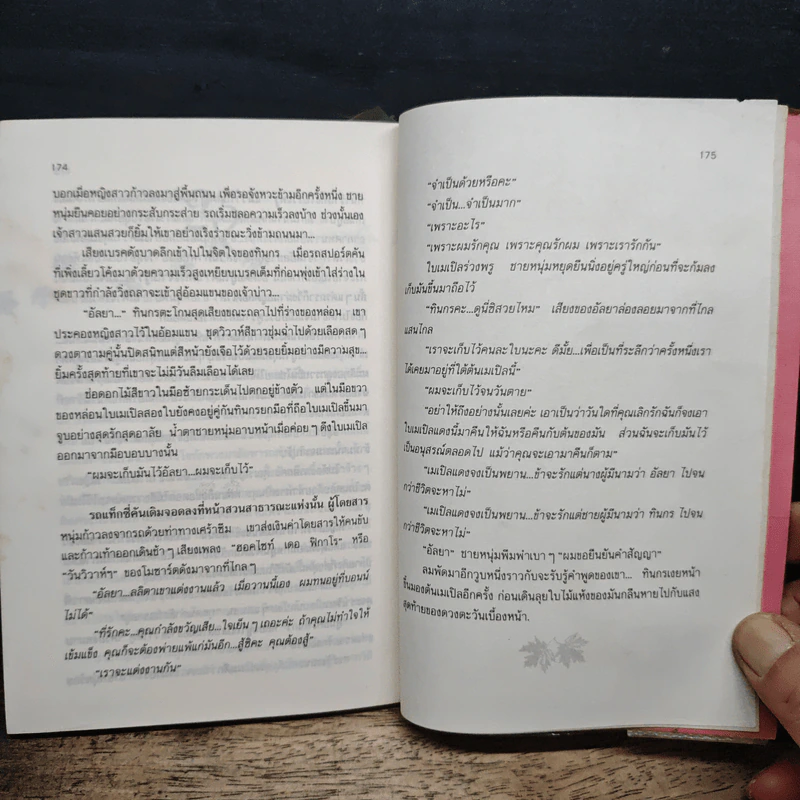 174
บอกเมื่อหญิงสาวก้าวลงมาสู่พื้นถนน เพื่อรอจังหวะข้ามอีกครั้งหนึ่ง ชาย
หนุ่มยืนคอยอย่างกระสับกระส่าย รถเริ่มชลอความเร็วลงบ้าง ช่วงนั้นเอง
เจ้าสาวแสนสวยก็ยิ้มให้เขาอย่างเริงร่าขณะวิ่งข้ามถนนมา...
เสียงเบรคดังบาดลึกเข้าไปในจิตใจของทินกร เมื่อรถสปอร์ตคัน
ที่เพิ่งเลี้ยวโค้งมาด้วยความเร็วสูงเหยียบเบรคเต็มที่ก่อนพุ่งเข้าใส่ร่างใน
ชุดขาวที่กำลังวิ่งถลาจะเข้าสู่อ้อมแขนของเจ้าบ่าว...
“อัลยา...” ทินกรตะโกนสุดเสียงขณะถลาไปที่ร่างของหล่อน เขา
ประคองหญิงสาวไว้ในอ้อมแขน ชุดวิวาห์สีขาวชุ่มฉ่ำไปด้วยเลือดสด ๆ
ดวงตางามคู่นั้นปิดสนิทแต่สีหน้ายังเจือไว้ด้วยรอยยิ้มอย่างมีความสุข...
ยิ้มครั้งสุดท้ายที่เขาจะไม่มีวันลืมเลือนได้เลย
ช่อดอกไม้สีขาวในมือซ้ายกระเด็นไปตกอยู่ข้างตัว แต่ในมือขวา
ของหล่อนใบเมเปิลสองใบยังคงอยู่คู่กันทินกรยกมือที่ถือใบเมเปิลขึ้นมา
จูบอย่างสุดรักสุดอาลัย น้ำตาชายหนุ่มอาบหน้าเมื่อค่อย ๆ ดึงใบเมเปิล
ออกมาจากมือบอบบางนั้น
“ผมจะเก็บมันไว้อัลยา...ผมจะเก็บไว้”
รถแท็กซี่คันเดิมจอดลงที่หน้าสวนสาธารณะแห่งนั้น ผู้โดยสาร
หนุ่มก้าวลงจากรถด้วยท่าทางเศร้าซึม เขาส่งเงินค่าโดยสารให้คนขับ
และก้าวเท้าออกเดินช้า ๆ เสียงเพลง “ฮอคไซท์ เดอ ฟิกาโร” หรือ
“วันวิวาห์ๆ” ของโมซาร์ตดังมาจากที่ไกล ๆ
“อัลยา...ลลิตาเขาแต่งงานแล้ว เมื่อวานนี้เอง ผมทนอยู่ที่บอนน์
ไม่ได้”
“ที่รักคะ...คุณกำลังขวัญเสีย...ใจเย็น ๆ เถอะค่ะ ถ้าคุณไม่ทำใจให้
เข้มแข็ง คุณก็จะต้องพ่ายแพ้แก่มันอีก...สู้ซิคะ คุณต้องสู้”
“เราจะแต่งงานกัน”
175
“จำเป็นด้วยหรือคะ”
“จำเป็น...จำเป็นมาก”
“เพราะอะไร”
“เพราะผมรักคุณ เพราะคุณรักผม เพราะเรารักกัน”
ใบเมเปิลร่วงพรู ชายหนุ่มหยุดยืนนิ่งอยู่ครู่ใหญ่ก่อนที่จะก้มลง
เก็บมันขึ้นมาถือไว้
“ทินกรคะ...ดูนี่ซิสวยไหม” เสียงของอัลยาล่องลอยมาจากที่ไกล
แสนไกล
“เราจะเก็บไว้คนละใบนะคะ ดีมั้ย...เพื่อเป็นที่ระลึกว่าครั้งหนึ่งเรา
ได้เคยมาอยู่ที่ใต้ต้นเมเปิลนี้”
“ผมจะเก็บไว้จนวันตาย”
“อย่าให้ถึงอย่างนั้นเลยค่ะ เอาเป็นว่าวันใดที่คุณเลิกรักฉันก็จงเอา
ใบเมเปิลแดงนี้มาคืนให้ฉันหรือคืนกับต้นของมัน ส่วนฉันจะเก็บมันไว้
เป็นอนุสรณ์ตลอดไป แม้ว่าคุณจะเอามาคืนก็ตาม”
“เมเปิลแดงจงเป็นพยาน...ข้าจะรักแต่นางผู้มีนามว่า อัลยา ไปจน
กว่าชีวิตจะหาไม่”
“เมเปิลแดงจงเป็นพยาน...ข้าจะรักแต่ชายผู้มีนามว่า ทินกร ไปจน
กว่าชีวิตจะหาไม่”
“อัลยา” ชายหนุ่มพึมพำเบา ๆ “ผมขอยืนยันคำสัญญา”
ลมพัดมาอีกวูบหนึ่งราวกับจะรับรู้คำพูดของเขา... ทินกรเงยหน้า
ขึ้นมองต้นเมเปิลอีกครั้ง ก่อนเดินลุยใบไม้แห้งของมันกลืนหายไปกับแสง
สุดท้ายของดวงตะวันเบื้องหน้า.